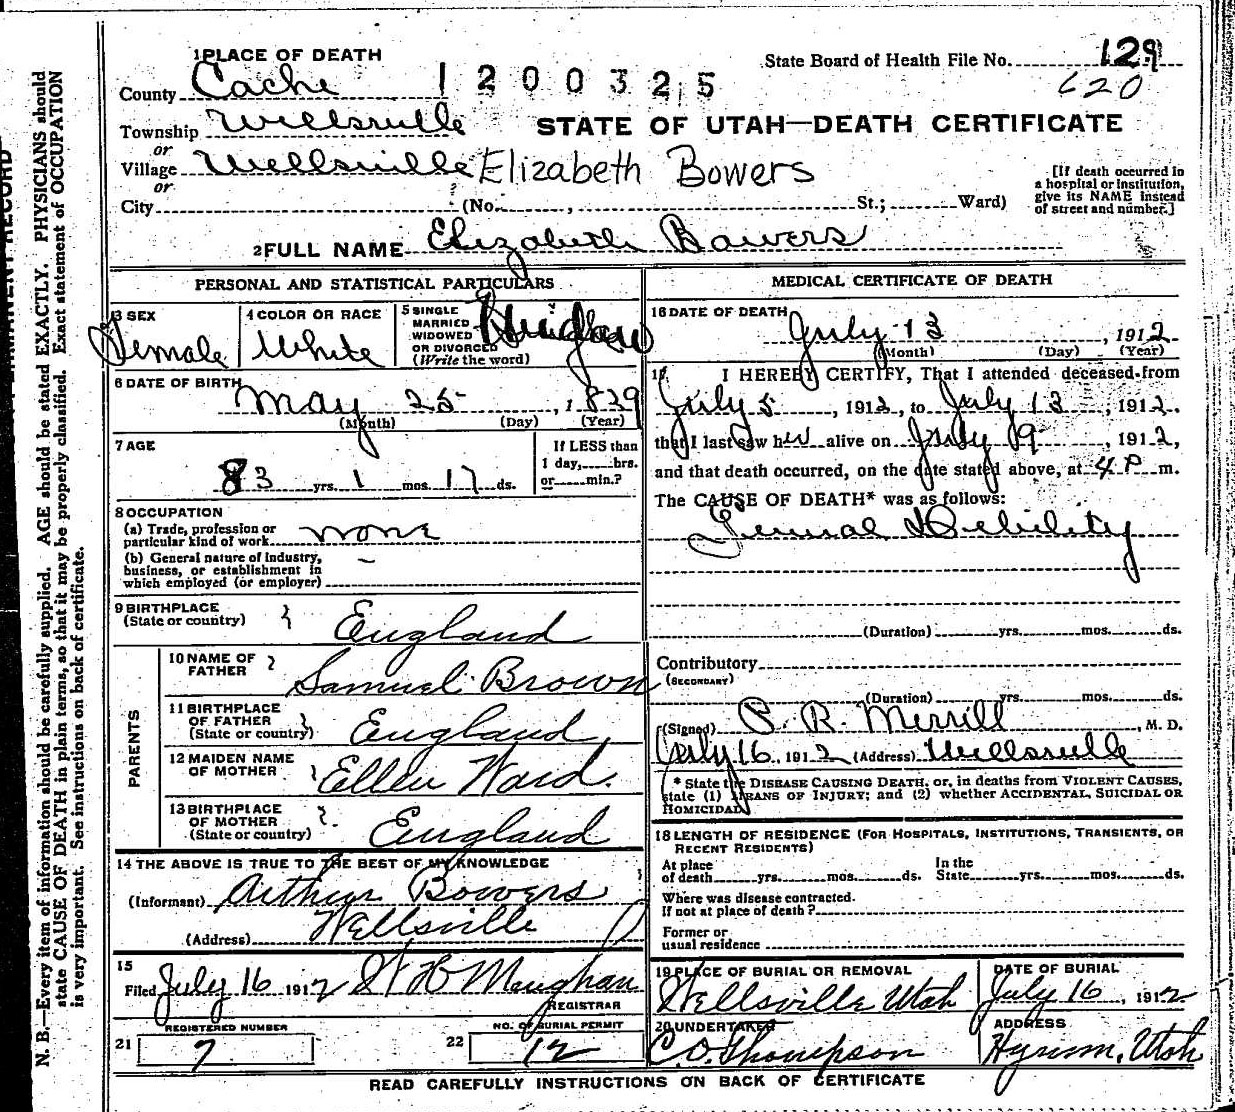 1 PLACE OF DEATH
County Cache
1200325
State Board of Health File No. 129
620
Township Wellsville
STATE OF UTAH—DEATH CERTIFICATE
or
Village Wellsville Elizabeth Bowers
or
City (No. , St.; Ward)
[If death occurred in
a hospital or institution,
give its NAME instead
of street and number.]
2 FULL NAME Elizabeth Bowers
PERSONAL AND STATISTICAL PARTICULARS
3 SEX Female
4 COLOR OR RACE White
5 SINGLE
MARRIED
WIDOWED
OR DIVORCED
(Write the word)
6 DATE OF BIRTH
May 25, 1829
(Month) (Day) (Year)
7 AGE
83 yrs. 1 mos. 17 ds.
If LESS than
1 day, hrs.
or min.?
8 OCCUPATION
(a) Trade, profession or
particular kind of work none
(b) General nature of industry,
business, or establishment in
which employed (or employer)
9 BIRTHPLACE
(State or country) England
PARENTS
10 NAME OF
FATHER Samuel Brown
11 BIRTHPLACE
OF FATHER
(State or country) England
12 MAIDEN NAME
OF MOTHER Ellen Ward.
13 BIRTHPLACE
OF MOTHER
(State or country) England
14 THE ABOVE IS TRUE TO THE BEST OF MY KNOWLEDGE
(Informant) Arthur Bowers
(Address) Wellsville
15
Filed July 16 1912 W H Maughan
REGISTRAR
REGISTERED NUMBER
21 7
NO. OF BURIAL PERMIT
22 12
MEDICAL CERTIFICATE OF DEATH
16 DATE OF DEATH
July 13, 1912
(Month) (Day) (Year)
17 I HEREBY CERTIFY, That I attended deceased from
July 5, 1912, to July 13, 1912.
that I last saw her alive on July 9, 1912,
and that death occurred, on the date stated above, at 4 P m.
The CAUSE OF DEATH* was as follows:
General Debility
(Duration) yrs. mos. ds.
Contributory
(SECONDARY)
(Duration) yrs. mos. ds.
(Signed) P. R. Merrill, M. D.
July 16, 1912 (Address) Wellsville
* State the DISEASE CAUSING DEATH, or, in deaths from VIOLENT CAUSES,
state (1) MEANS OF INJURY; and (2) whether ACCIDENTAL, SUICIDAL OR
HOMICIDAL
18 LENGTH OF RESIDENCE (FOR HOSPITALS, INSTITUTIONS, TRANSIENTS, OR
RECENT RESIDENTS)
At place
of death yrs. mos. ds.
In the
State yrs. mos. ds.
Where was disease contracted.
If not at place of death?
Former or
usual residence
19 PLACE OF BURIAL OR REMOVAL
Wellsville Utah
DATE OF BURIAL
July 16, 1912
20 UNDERTAKER
C. O. Thompson
ADDRESS
Hyrum, Utah
READ CAREFULLY INSTRUCTIONS ON BACK OF CERTIFICATE
N. B.—Every item of information should be carefully supplied. AGE should be stated EXACTLY. PHYSICIANS should
state CAUSE OF DEATH in plain terms, so that it may be properly classified. Exact statement of OCCUPATION
is very important. See instructions on back of certificate.